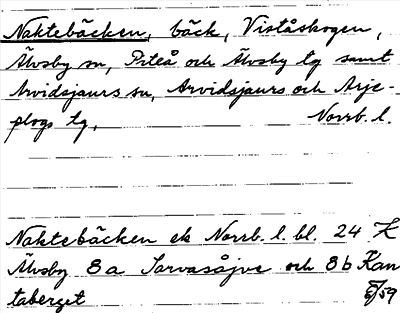 Naktebäcken, bäck, Viståskogen,
Älvsby sn, Piteå och Älvsby tg samt
Arvidsjaurs sn, Arvidsjaurs och Arje-
plogs tg, Norrb. l.
Naktebäcken ek Norrb. l. bl. 24
Älvsby 8a Sarvasåjve och 8b Kan
taberget /59